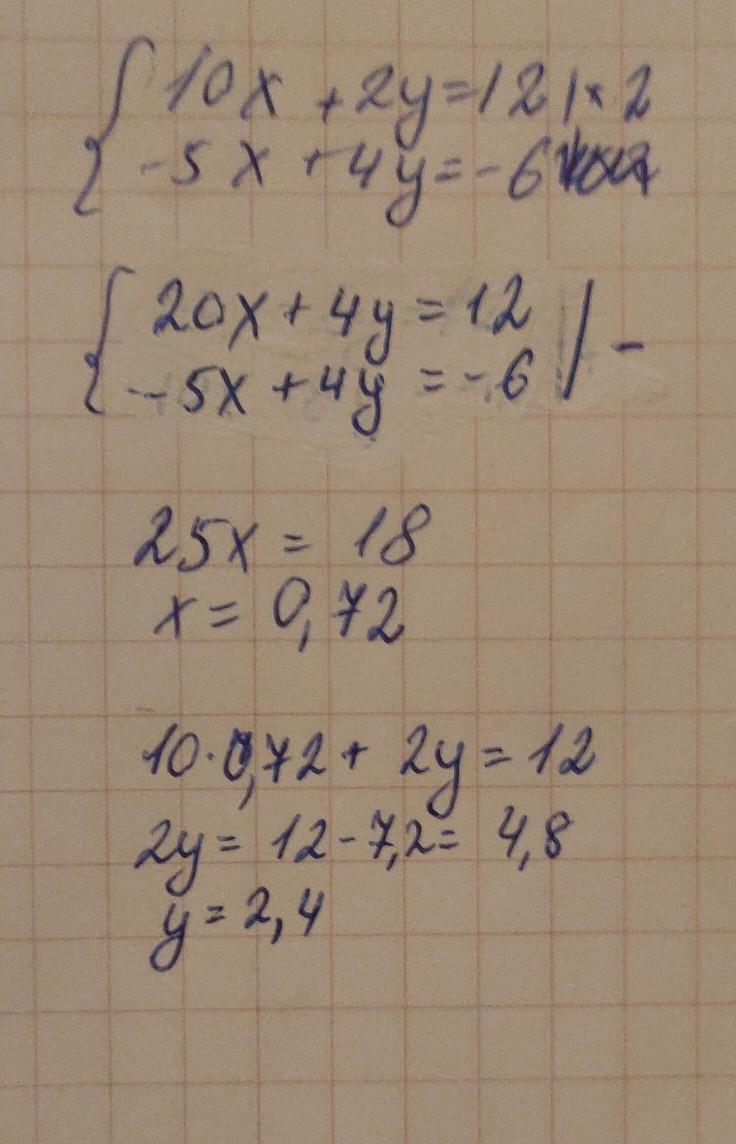 10x + 2y = 12 | × 2
-5x + 4y = -6
20x + 4y = 12
-5x + 4y = -6 | -
25x = 18
x = 0,72
10·0,72 + 2y = 12
2y = 12 - 7,2 = 4,8
y = 2,4